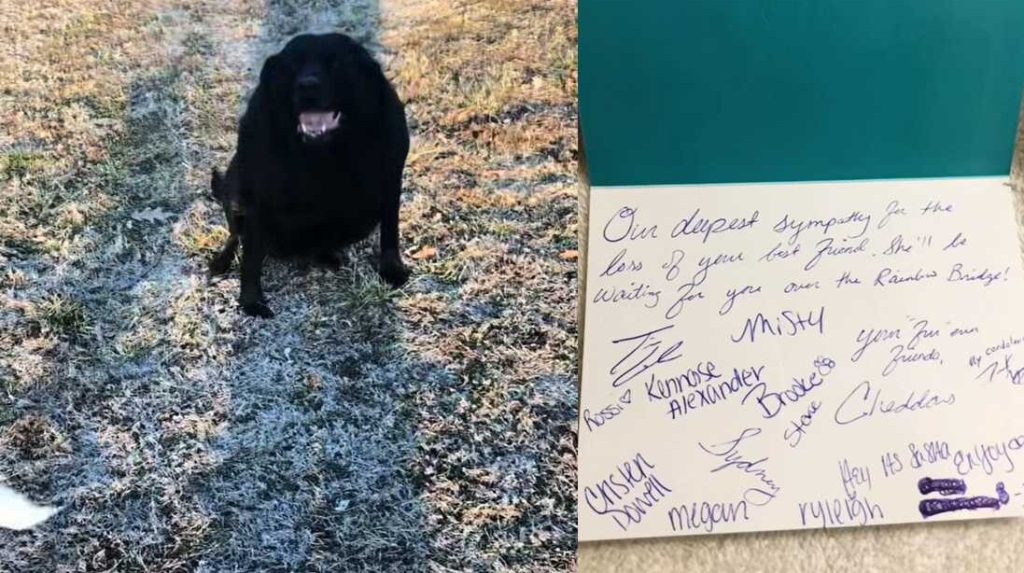 Our deepest sympathy for the
loss of your best friend. She'll be
waiting for you over the Rainbow Bridge!
Misty
your "fur"ever
friends,
My condolences
Rossi
Kennose
Alexander
Brooke
Steve
Cheddars
Sydney
Cristen
Dowell
megan
ryleigh
Hey its
enjoy